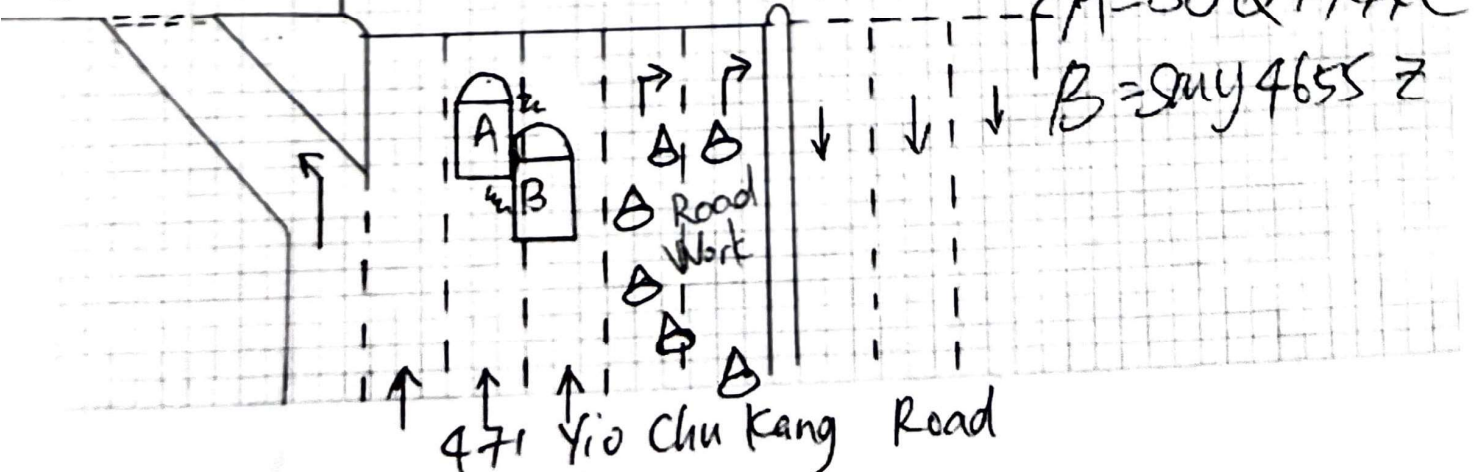 B = SMY 4655 Z
A
B
Road
Work
471 Yio Chu Kang Road